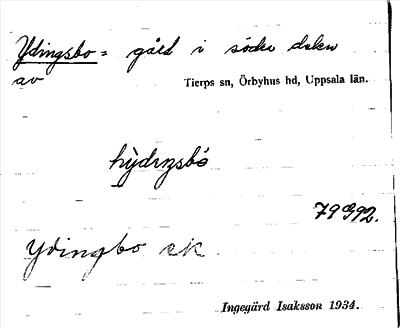 Ydingsbo = gård i södra delen
av Tierps sn, Örbyhus hd, Uppsala län.
79 G 92.
Ydingbo ek
Ingegärd Isaksson 1934.